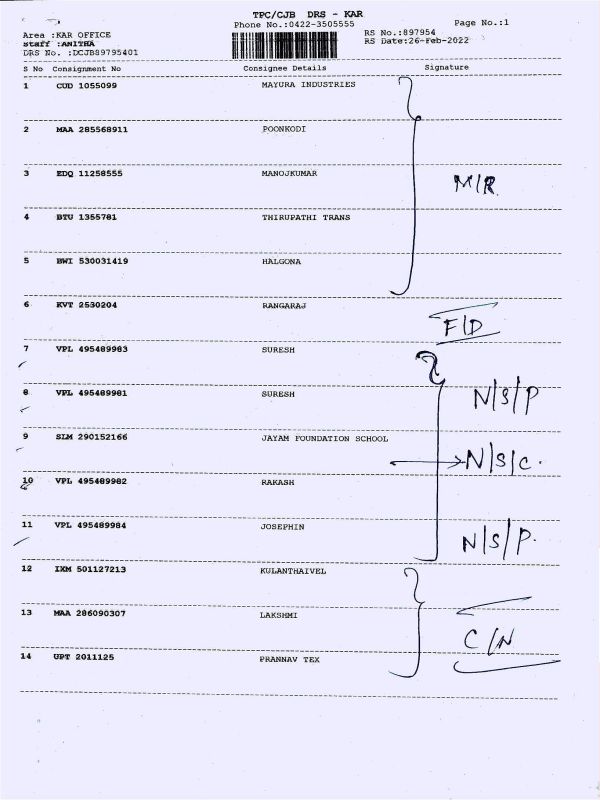 TPC/CJB DRS - KAR
Phone No.:0422-3505555
Page No.:1
Area :KAR OFFICE
RS No.:897954
Staff :ANITHA
RS Date:26-Feb-2022
DRS No. :DCJB89795401
S No Consignment No Consignee Details Signature
1 CUD 1055099 MAYURA INDUSTRIES
2 MAA 285568911 POONKODI
3 EDQ 11258555 MANOJKUMAR
M/R
4 BTU 1355781 THIRUPATHI TRANS
5 BWI 530031419 HALGONA
6 KVT 2530204 RANGARAJ
F/D
7 VPL 495489983 SURESH
8 VPL 495489981 SURESH
N/S/P
9 SLM 290152166 JAYAM FOUNDATION SCHOOL
N/S/C.
10 VPL 495489982 RAKASH
11 VPL 495489984 JOSEPHIN
N/S/P.
12 IXM 501127213 KULANTHAIVEL
13 MAA 286090307 LAKSHMI
C/N
14 UPT 2011125 PRANNAV TEX